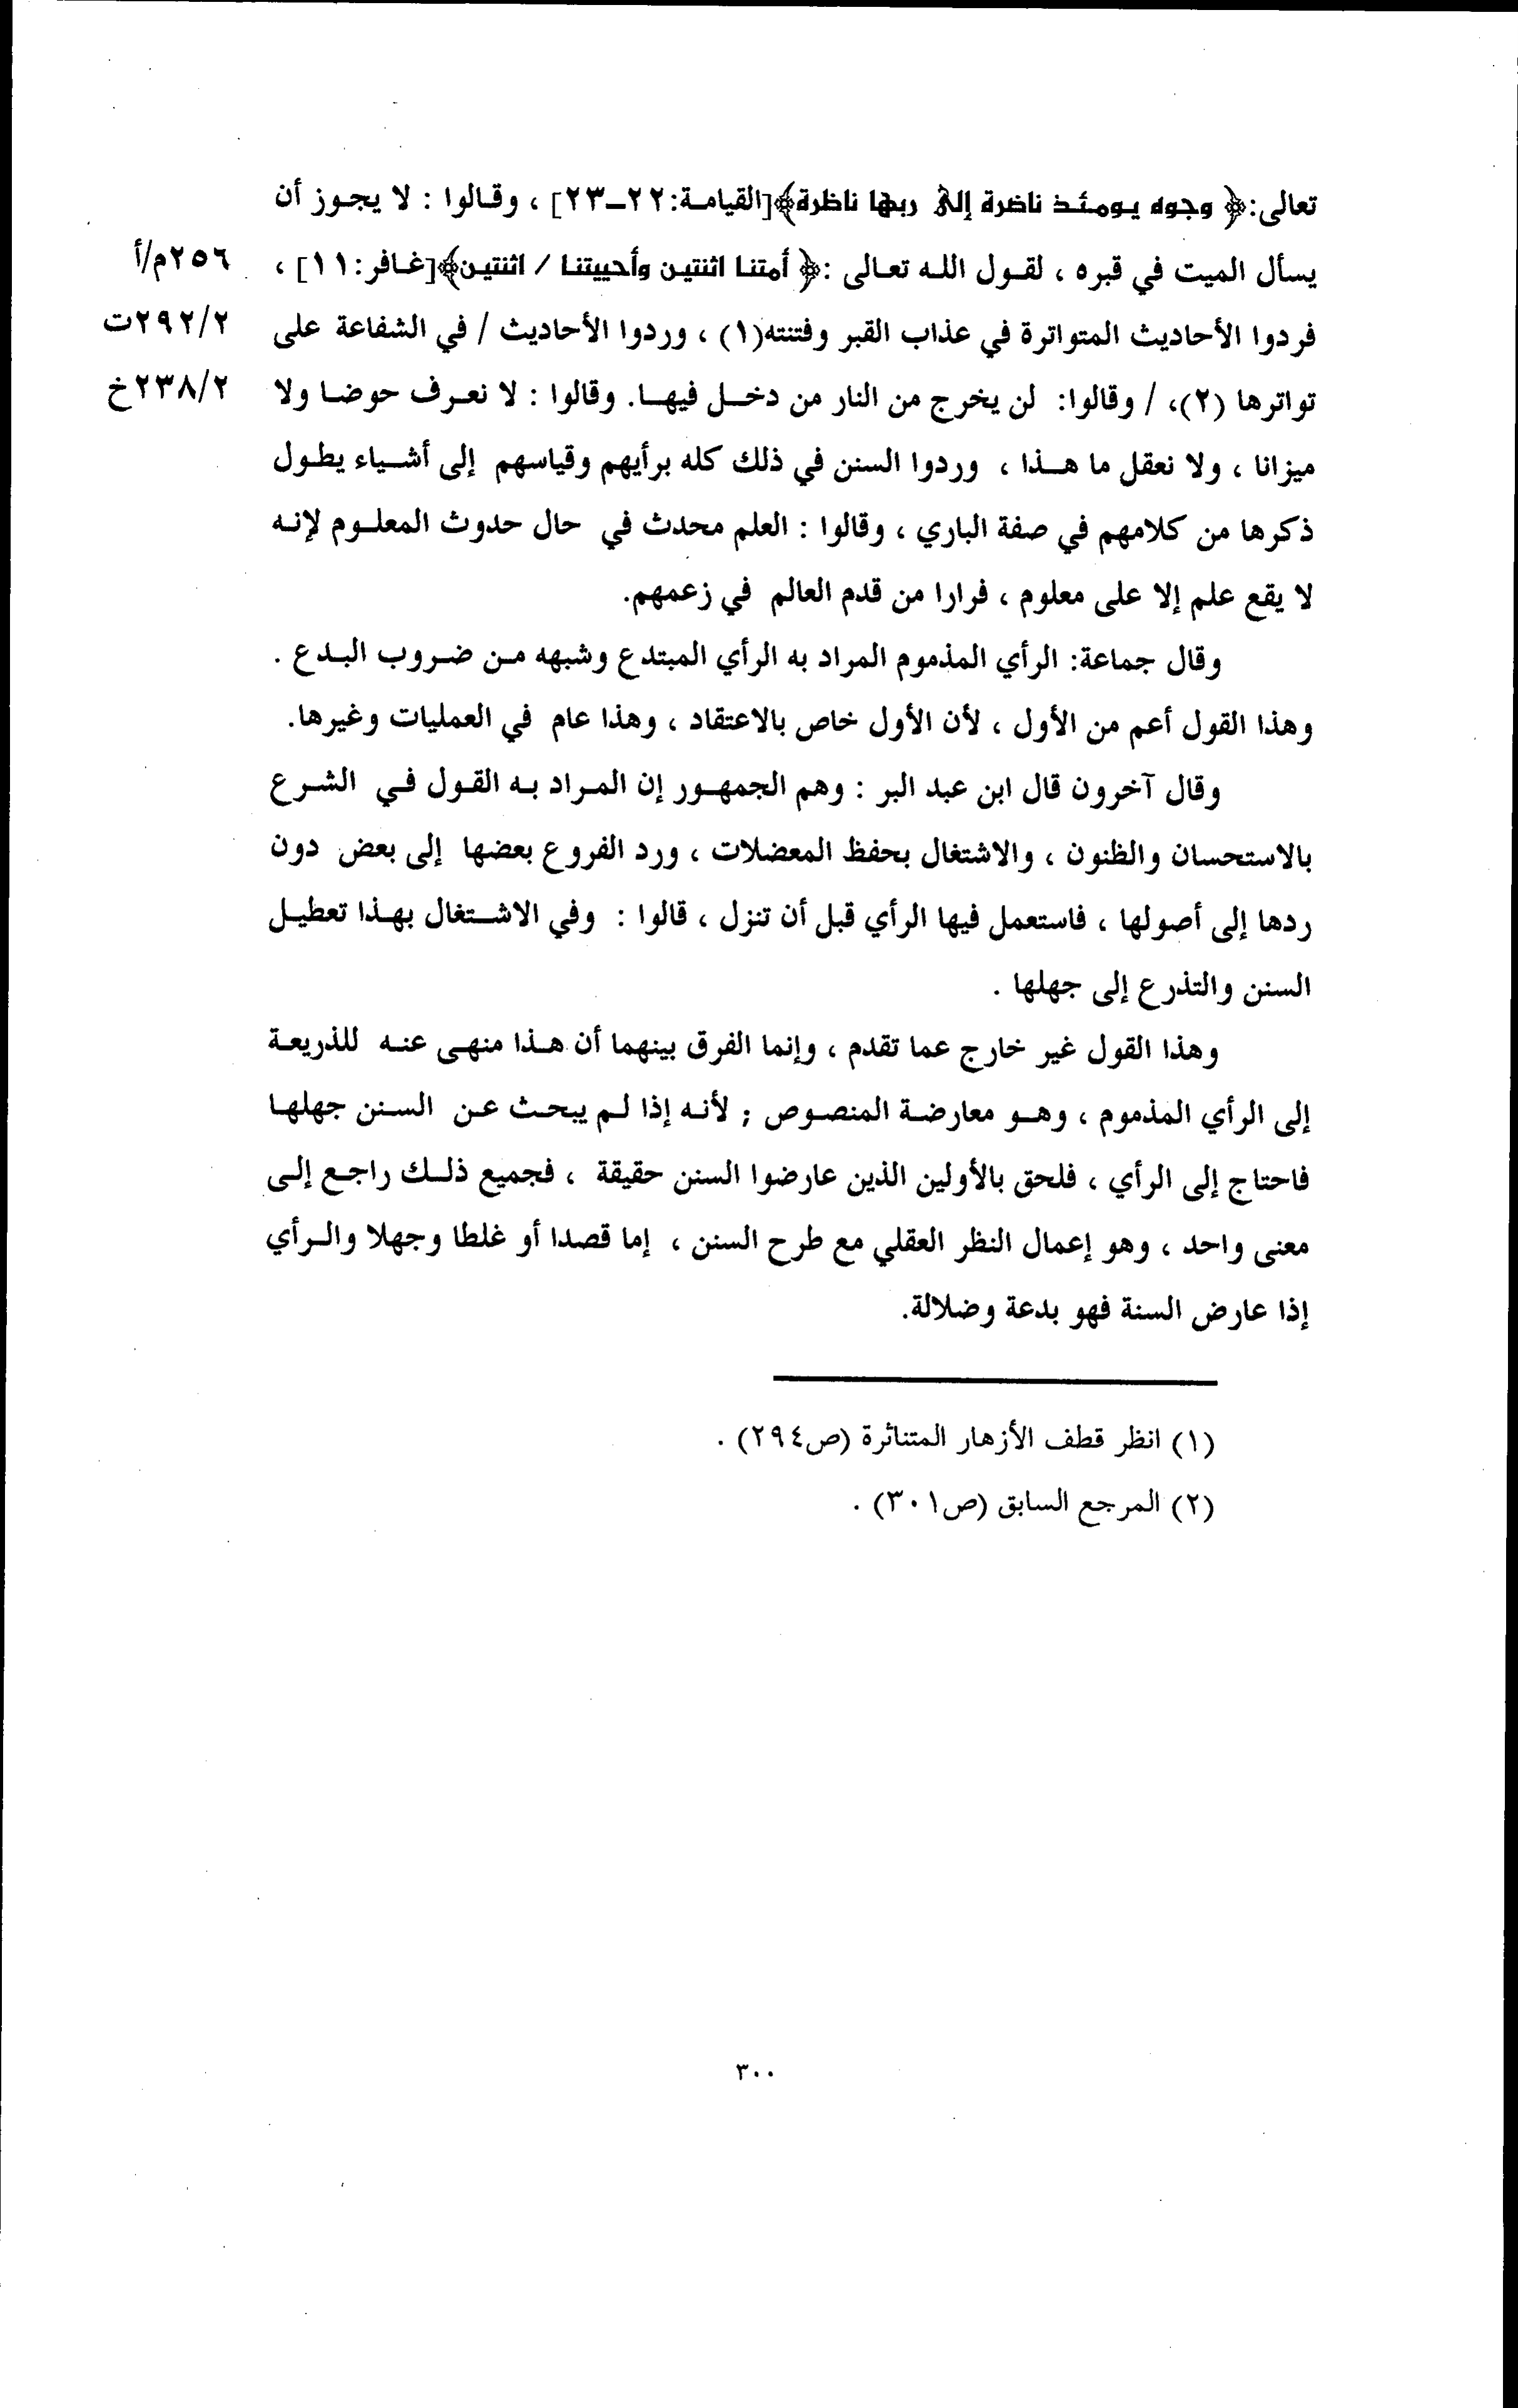 تعالى:﴿ وجوه يومئذ ناضرة إلى ربها ناظرة﴾[القيامة:٢٢-٢٣] ، وقالوا : لا يجوز أن
يسأل الميت في قبره ، لقول الله تعالى :﴿ أمتنا اثنتين وأحييتنا / اثنتين﴾[غافر:١١] ،
٢٥٦م/أ
فردوا الأحاديث المتواترة في عذاب القبر وفتنته(١) ، وردوا الأحاديث / في الشفاعة على
٢٩٢/٢ت
تواترها (٢)، / وقالوا: لن يخرج من النار من دخل فيها. وقالوا : لا نعرف حوضا ولا
٢٣٨/٢خ
ميزانا ، ولا نعقل ما هذا ، وردوا السنن في ذلك كله برأيهم وقياسهم إلى أشياء يطول
ذكرها من كلامهم في صفة الباري ، وقالوا : العلم محدث في حال حدوث المعلوم لإنه
لا يقع علم إلا على معلوم ، فرارا من قدم العالم في زعمهم.
وقال جماعة: الرأي المذموم المراد به الرأي المبتدع وشبهه من ضروب البدع .
وهذا القول أعم من الأول ، لأن الأول خاص بالاعتقاد ، وهذا عام في العمليات وغيرها.
وقال آخرون قال ابن عبد البر : وهم الجمهور إن المراد به القول في الشرع
بالاستحسان والظنون ، والاشتغال بحفظ المعضلات ، ورد الفروع بعضها إلى بعض دون
ردها إلى أصولها ، فاستعمل فيها الرأي قبل أن تنزل ، قالوا : وفي الاشتغال بهذا تعطيل
السنن والتذرع إلى جهلها .
وهذا القول غير خارج عما تقدم ، وإنما الفرق بينهما أن هذا منهى عنه للذريعة
إلى الرأي المذموم ، وهو معارضة المنصوص ; لأنه إذا لم يبحث عن السنن جهلها
فاحتاج إلى الرأي ، فلحق بالأولين الذين عارضوا السنن حقيقة ، فجميع ذلك راجع إلى
معنى واحد ، وهو إعمال النظر العقلي مع طرح السنن ، إما قصدا أو غلطا وجهلا والرأي
إذا عارض السنة فهو بدعة وضلالة.
(١) انظر قطف الأزهار المتناثرة (ص٢٩٤) .
(٢) المرجع السابق (ص٣٠١) .
٣٠٠